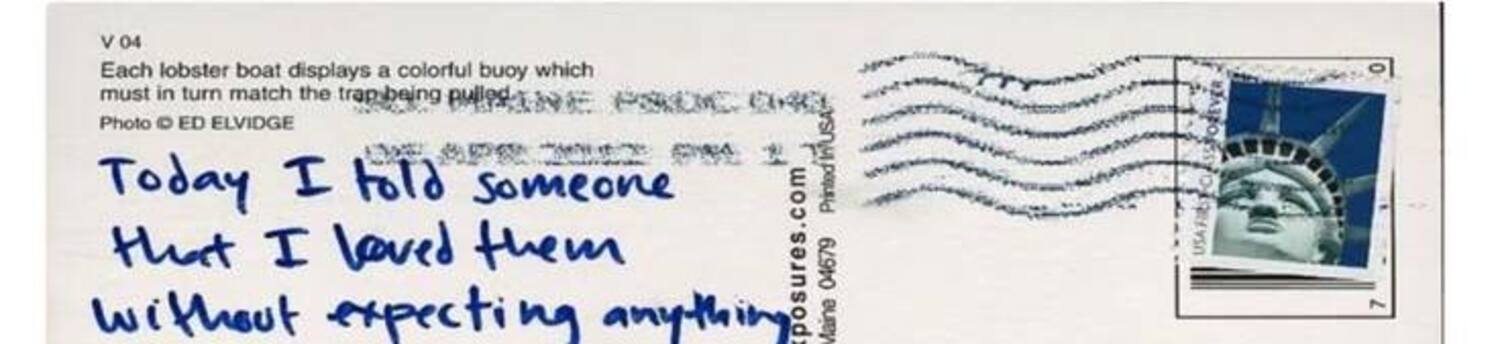 V 04
Each lobster boat displays a colorful buoy which
must in turn match the trap being pulled.
Photo © ED ELVIDGE
MAINE P&DC 040
05 APR 2012 PM 1
Today I told someone
that I loved them
without expecting anything
xposures.com
Maine 04679 Printed in USA
USA FIRST-CLASS FOREVER
0
7